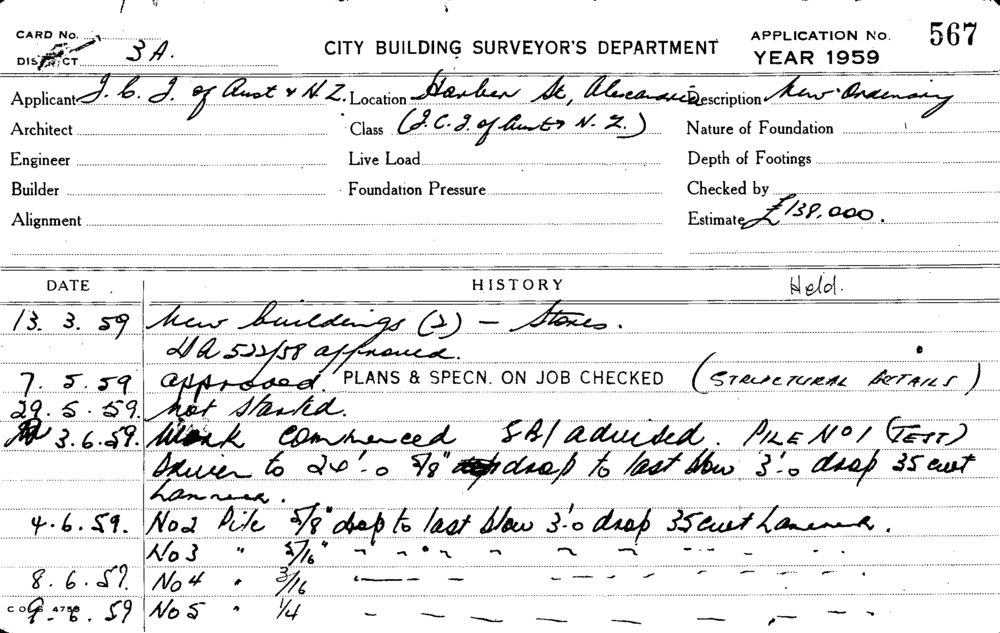 CARD No.
DISTRICT 3A.
CITY BUILDING SURVEYOR'S DEPARTMENT
APPLICATION No. 567
YEAR 1959
Applicant I. C. I. of Aust & N. Z. Location Harber St, Alexandria Description New Ordinary
Architect Class (I.C.I. of Aust & N. Z.) Nature of Foundation
Engineer Live Load Depth of Footings
Builder Foundation Pressure Checked by
Alignment Estimate £138,000.
DATE HISTORY Held.
13. 3. 59 New buildings (2) – Stores.
DA 522/58 approved.
7. 5. 59 approved. PLANS & SPECN. ON JOB CHECKED (STRUCTURAL DETAILS)
29. 5. 59. Not started.
3. 6. 59. Work commenced SBI advised. PILE No 1 (TEST)
Driven to 26'.0 5/8" drop to last blow 3'.0 drop 35 cwt
hammer.
4. 6. 59. No 2 Pile 5/8" drop to last blow 3'.0 drop 35 cwt hammer.
No 3 " 5/16" – – – – – – – –
8. 6. 59. No 4 " 3/16 – – – – – – – –
9. 6. 59 No 5 " 1/4 – – – – – – – –